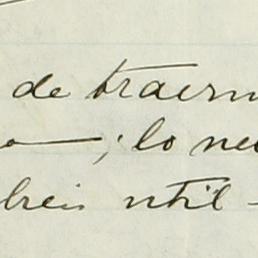 de traerm
o—; lo nec
breis util -